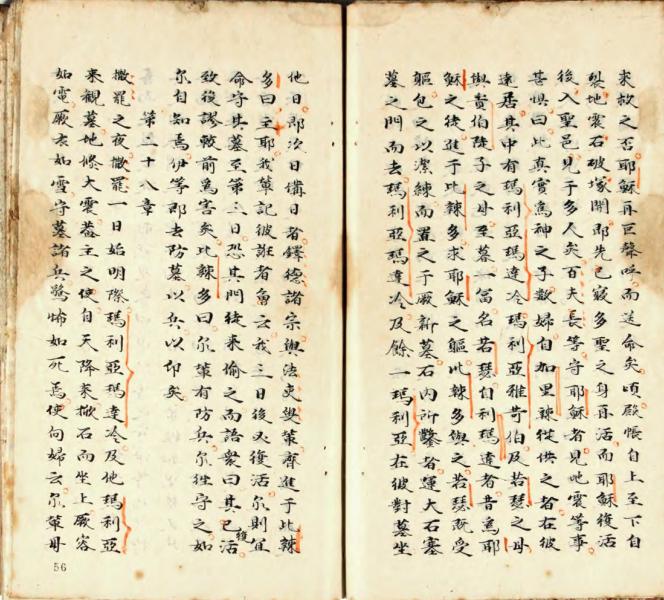 來救之否耶穌再巨聲呼而送命矣頃殿帳自上至下自
裂地震石破塚開即先已寢多聖之身再活而耶穌復活
後入聖邑見于多人矣百夫長等守耶穌者見地震等事
甚惧曰此真實為神之子數婦自加里辣從供之者在彼
遠居其中有瑪利亞瑪達冷瑪利亞雅苛伯及若瑟之母
與責伯陡子之母至暮富名若瑟自利瑪達者昔為耶
穌之徒進于比辣多求耶穌之軀比辣多與之若瑟既受
軀包之以潔練而置之于厥新墓石內所鑿者運大石塞
墓之門而去瑪利亞瑪達冷及餘一瑪利亞在彼對墓坐
他日即次日備日者鐸德諸宗與法吏與䇿齊進于比辣
多曰主耶我輩記彼誑者當云我三日後必復活尔則宜
命守其墓至第三日恐其門徒來偷之而語衆曰其已復活
致後謬較前為害矣比辣多曰尔輩有防兵尔徃守之如
尔自知焉伊等即去防墓以兵以印矣
第二十八章
撒罷之夜撒罷一日始明際瑪利亞瑪達冷及他瑪利亞
來觀墓地倐大震葢主之使自天降來掀石而坐上厥容
如電厥衣如雪守墓諸兵驚怖如死焉使向婦云尔輩毋
56